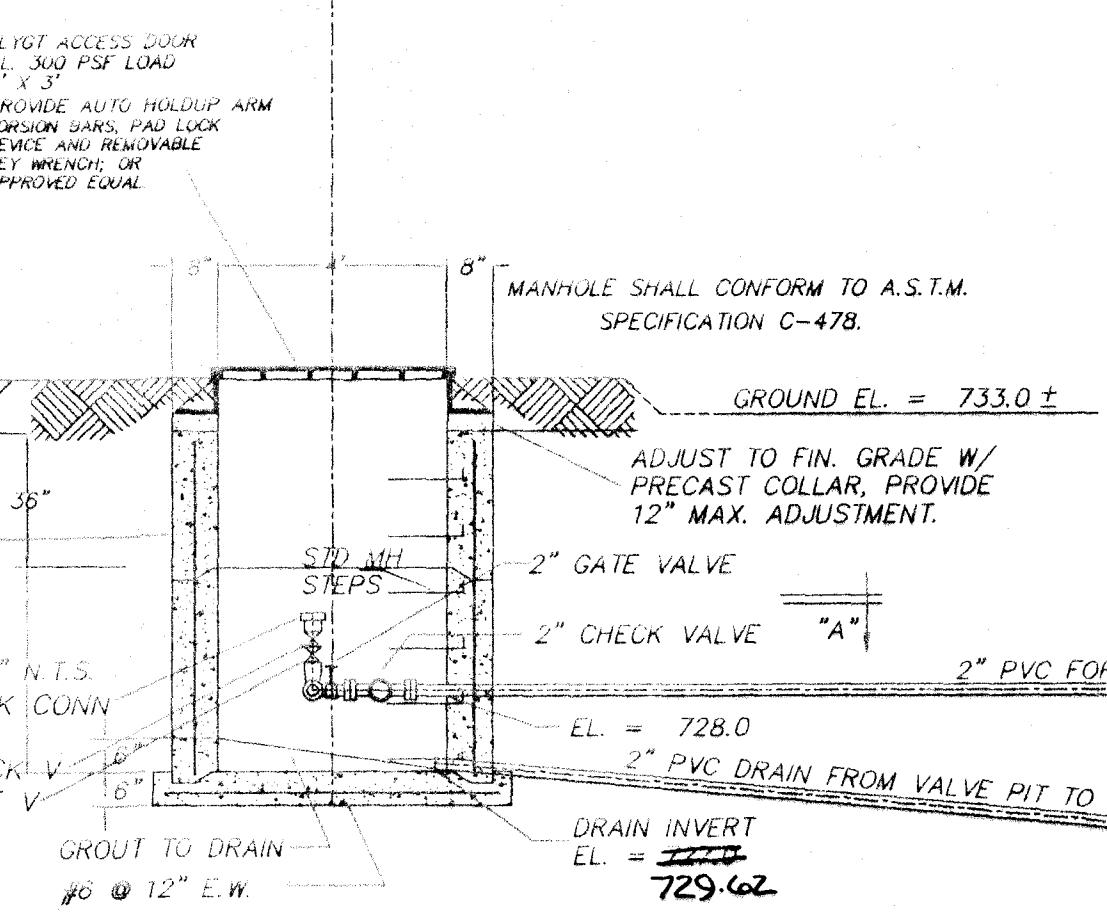 LYGT ACCESS DOOR
L. 300 PSF LOAD
' X 3'
ROVIDE AUTO HOLDUP ARM
ORSION BARS, PAD LOCK
EVICE AND REMOVABLE
EY WRENCH; OR
PPROVED EQUAL
8" 4' 8"
MANHOLE SHALL CONFORM TO A.S.T.M.
SPECIFICATION C-478.
GROUND EL. = 733.0 ±
ADJUST TO FIN. GRADE W/
PRECAST COLLAR, PROVIDE
12" MAX. ADJUSTMENT.
36"
STD MH
STEPS
2" GATE VALVE
2" CHECK VALVE
"A"
" N.T.S.
K CONN
2" PVC FOR
EL. = 728.0
CK V
V
6"
6"
2" PVC DRAIN FROM VALVE PIT TO
GROUT TO DRAIN
#6 @ 12" E.W.
DRAIN INVERT
EL. =
729.62